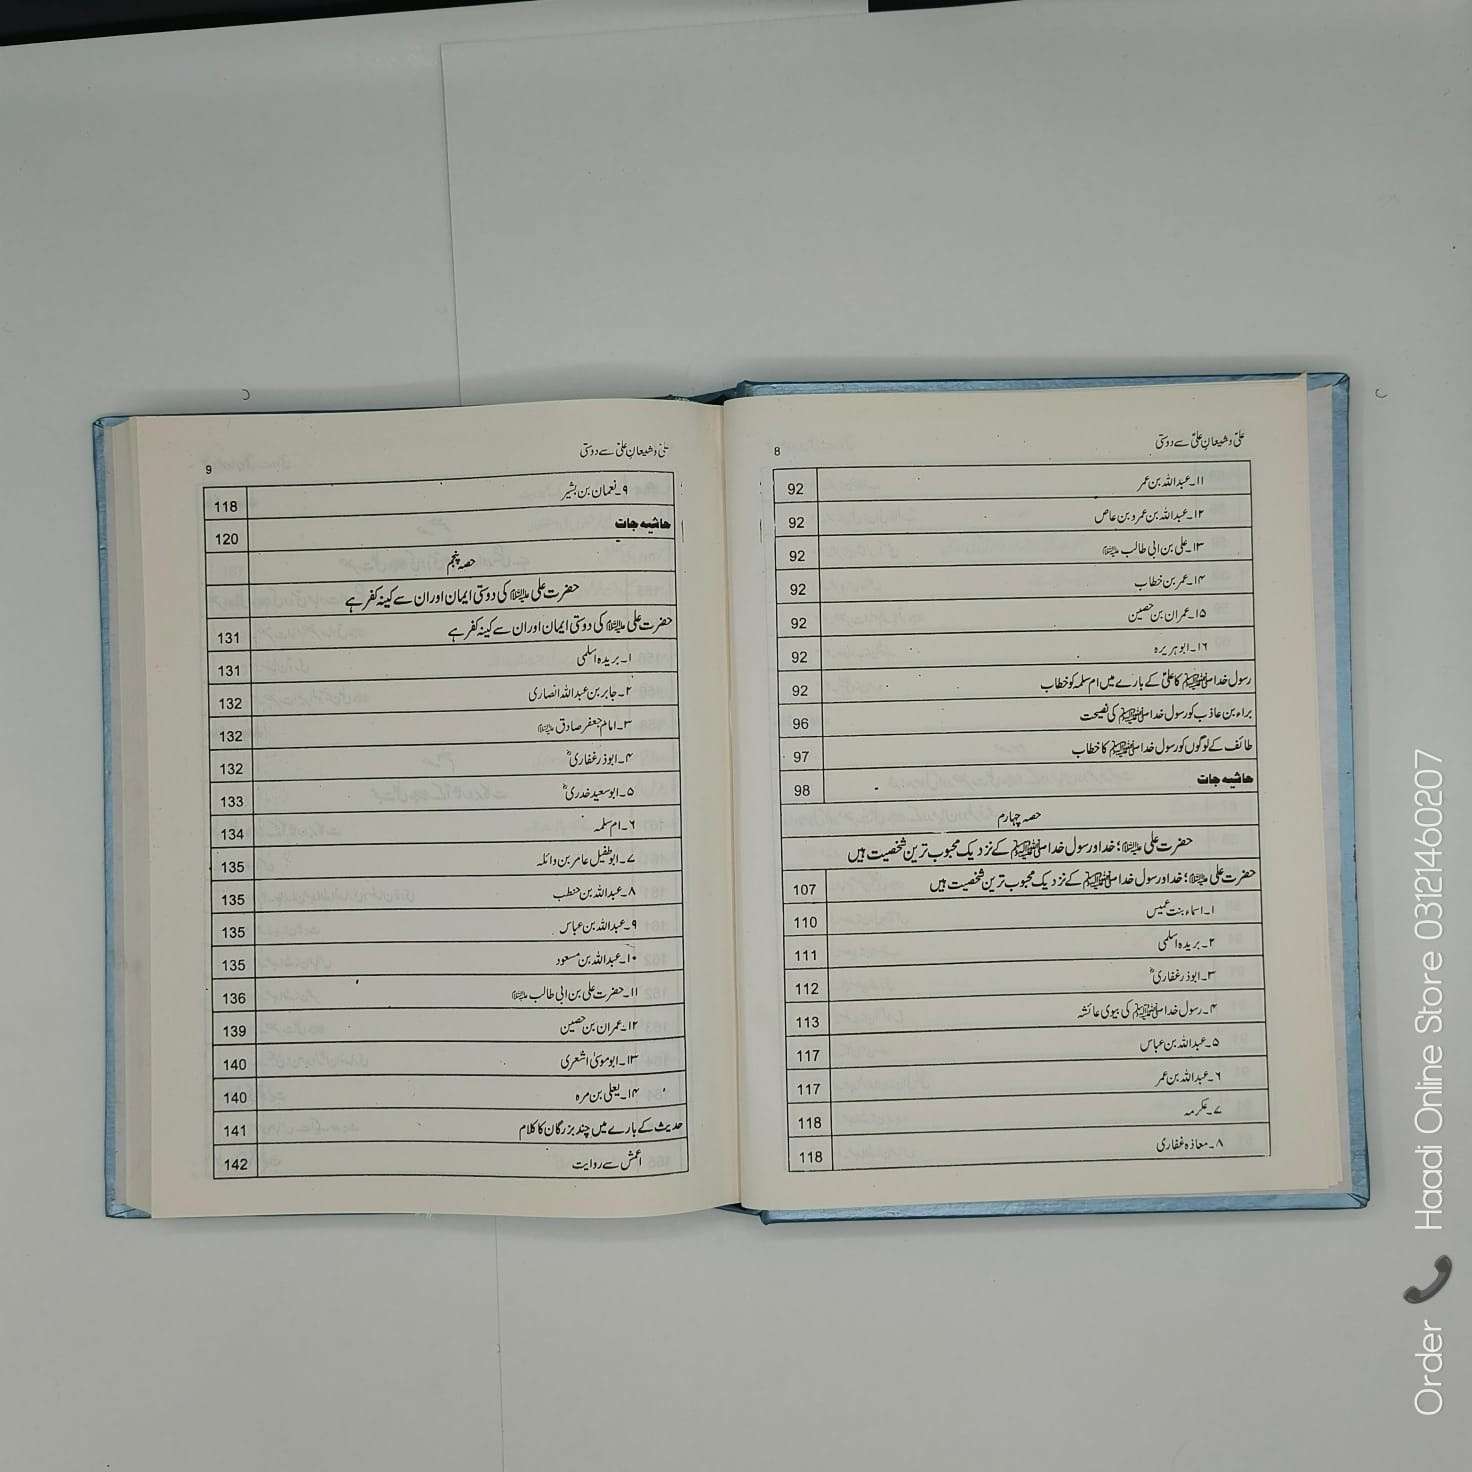 علیؑ و شیعانِ علیؑ سے دوستی 8
۱۱۔ عبداللہ بن عمر 92
۱۲۔ عبداللہ بن عمرو بن عاص 92
۱۳۔ علی بن ابی طالب علیہ السلام 92
۱۴۔ عمر بن خطاب 92
۱۵۔ عمران بن حصین 92
۱۶۔ ابو ہریرہ 92
رسول خدا ﷺ کا علیؑ کے بارے میں ام سلمہ کو خطاب 92
براء بن عاذب کو رسول خدا ﷺ کی نصیحت 96
طائف کے لوگوں کو رسول خدا ﷺ کا خطاب 97
حاشیہ جات 98
حصہ چہارم
حضرت علی علیہ السلام؛ خدا و رسول خدا ﷺ کے نزدیک محبوب ترین شخصیت ہیں
حضرت علی علیہ السلام؛ خدا و رسول خدا ﷺ کے نزدیک محبوب ترین شخصیت ہیں 107
۱۔ اسماء بنت عمیس 110
۲۔ بریدہ اسلمی 111
۳۔ ابوذر غفاریؓ 112
۴۔ رسول خدا ﷺ کی بیوی عائشہ 113
۵۔ عبداللہ بن عباس 117
۶۔ عبداللہ بن عمر 117
۷۔ عکرمہ 118
۸۔ معاذہ غفاری 118
علیؑ و شیعانِ علیؑ سے دوستی 9
۹۔ نعمان بن بشیر 118
حاشیہ جات 120
حصہ پنجم
حضرت علی علیہ السلام کی دوستی ایمان اور ان سے کینہ کفر ہے
حضرت علی علیہ السلام کی دوستی ایمان اور ان سے کینہ کفر ہے 131
۱۔ بریدہ اسلمی 131
۲۔ جابر بن عبداللہ انصاری 132
۳۔ امام جعفر صادق علیہ السلام 132
۴۔ ابوذر غفاریؓ 132
۵۔ ابو سعید خدریؓ 133
۶۔ ام سلمہ 134
۷۔ ابوطفیل عامر بن واثلہ 135
۸۔ عبداللہ بن حنطب 135
۹۔ عبداللہ بن عباس 135
۱۰۔ عبداللہ بن مسعود 135
۱۱۔ حضرت علی بن ابی طالب علیہ السلام 136
۱۲۔ عمران بن حصین 139
۱۳۔ ابو موسیٰ اشعری 140
۱۴۔ یعلی بن مرہ 140
حدیث کے بارے میں چند بزرگان کا کلام 141
اعمش سے روایت 142
Order Haadi Online Store 03121460207